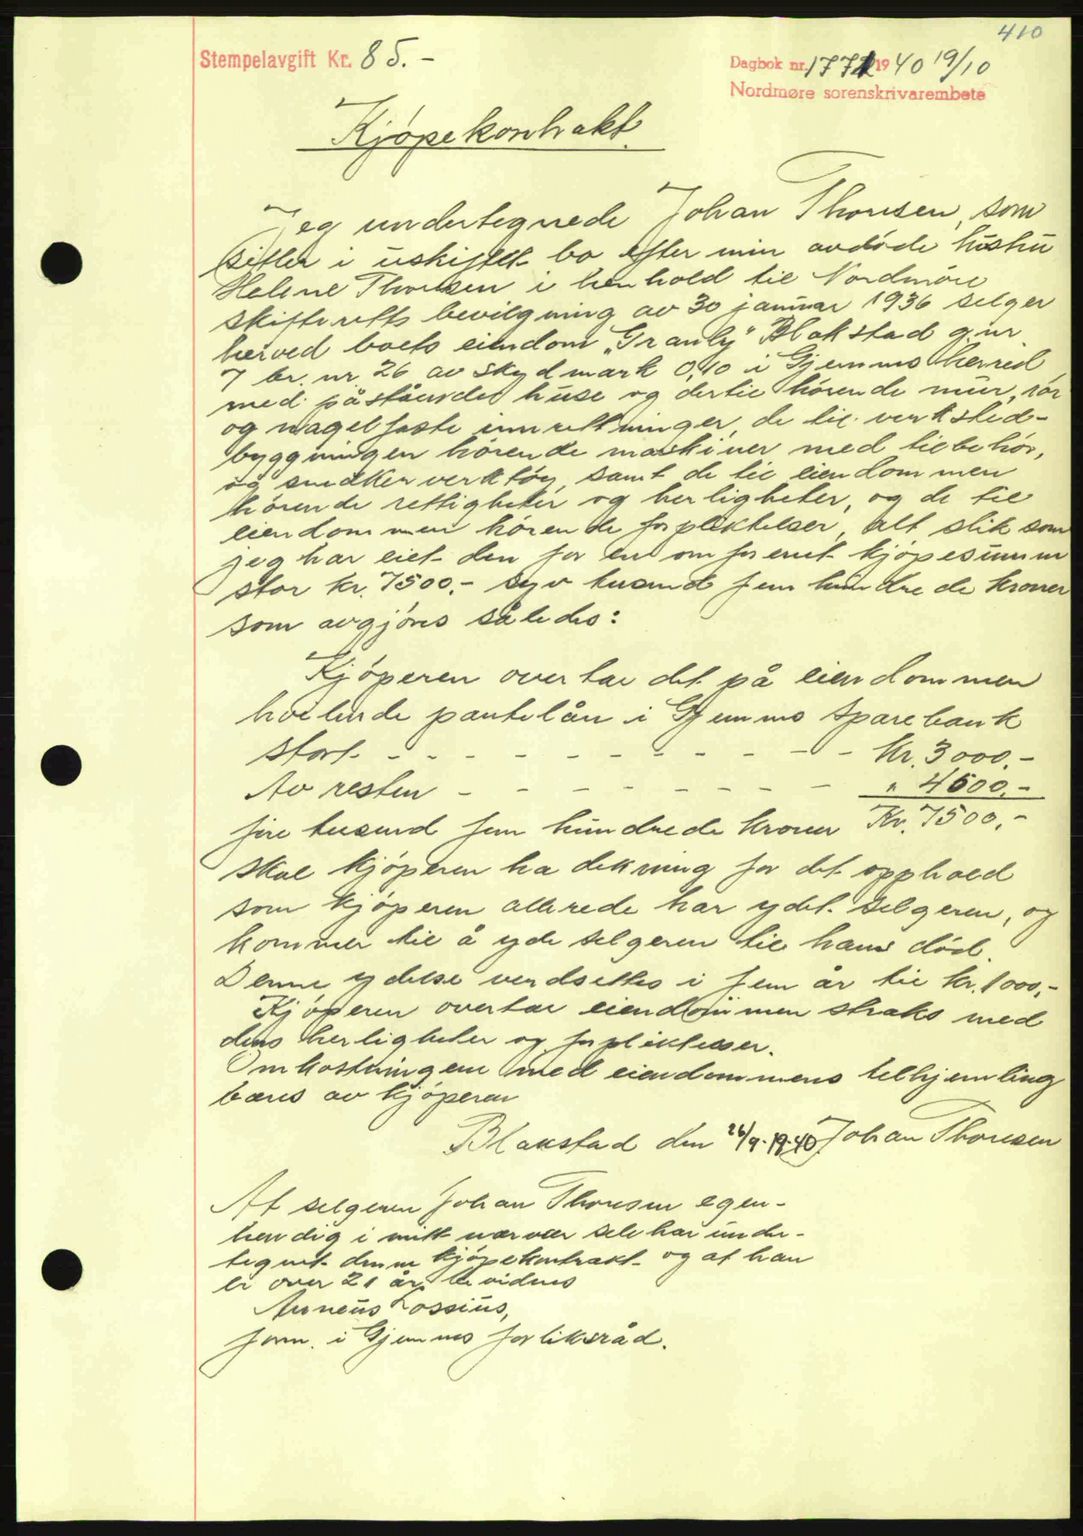 410
Stempelavgift Kr. 85.-
Dagbok nr. 1772 1940 19/10
Nordmøre sorenskrivarembete
Kjøpekontrakt.
Jeg undertegnede Johan Thoresen, som
sitter i uskiftet bo efter min avdøde hustru
Helene Thoresen i henhold til Nordmøre
skifteretts bevilgning av 30 januar 1936 selger
herved boets eiendom „Granly" Blakstad g.nr.
7 br. nr. 26 av skyldmark 0,10 i Gjemnes herred
med påstående huse og dertil hørende mur, rør
og nagelfaste innretninger, de til verksted-
bygningen hørende maskiner med tilbehør,
og snekkerverktøy, samt de til eiendommen
hørende rettigheter og herligheter, og de til
eiendommen hørende forpliktelser, alt slik som
jeg har eiet den for en omforenet kjøpesum
stor kr. 7500.- syv tusend fem hundrede kroner
som avgjøres således:
Kjøperen overtar det på eiendommen
heftende pantelån i Gjemnes Sparebank
stort - - - - - - - - - - - - Kr. 3000.-
Av resten - - - - - - - - " 4500.-
fire tusend fem hundrede kroner Kr. 7500.-
skal kjøperen ha dekning for det opphold
som kjøperen allerede har ydet selgeren, og
kommer til å yde selgeren til hans død.
Denne ydelse verdsettes i fem år til kr. 1000.-
Kjøperen overtar eiendommen straks med
dens herligheter og forpliktelser.
Omkostningene med eiendommens tilhjemling
bæres av kjøperen
Blakstad den 26/9-19-40. Johan Thoresen
At selgeren Johan Thoresen egen-
hendig i mitt nærvær selv har under-
tegnet denne kjøpekontrakt og at han
er over 21 år bevidnes
Anneus Lossius,
form. i Gjemnes forliksråd.